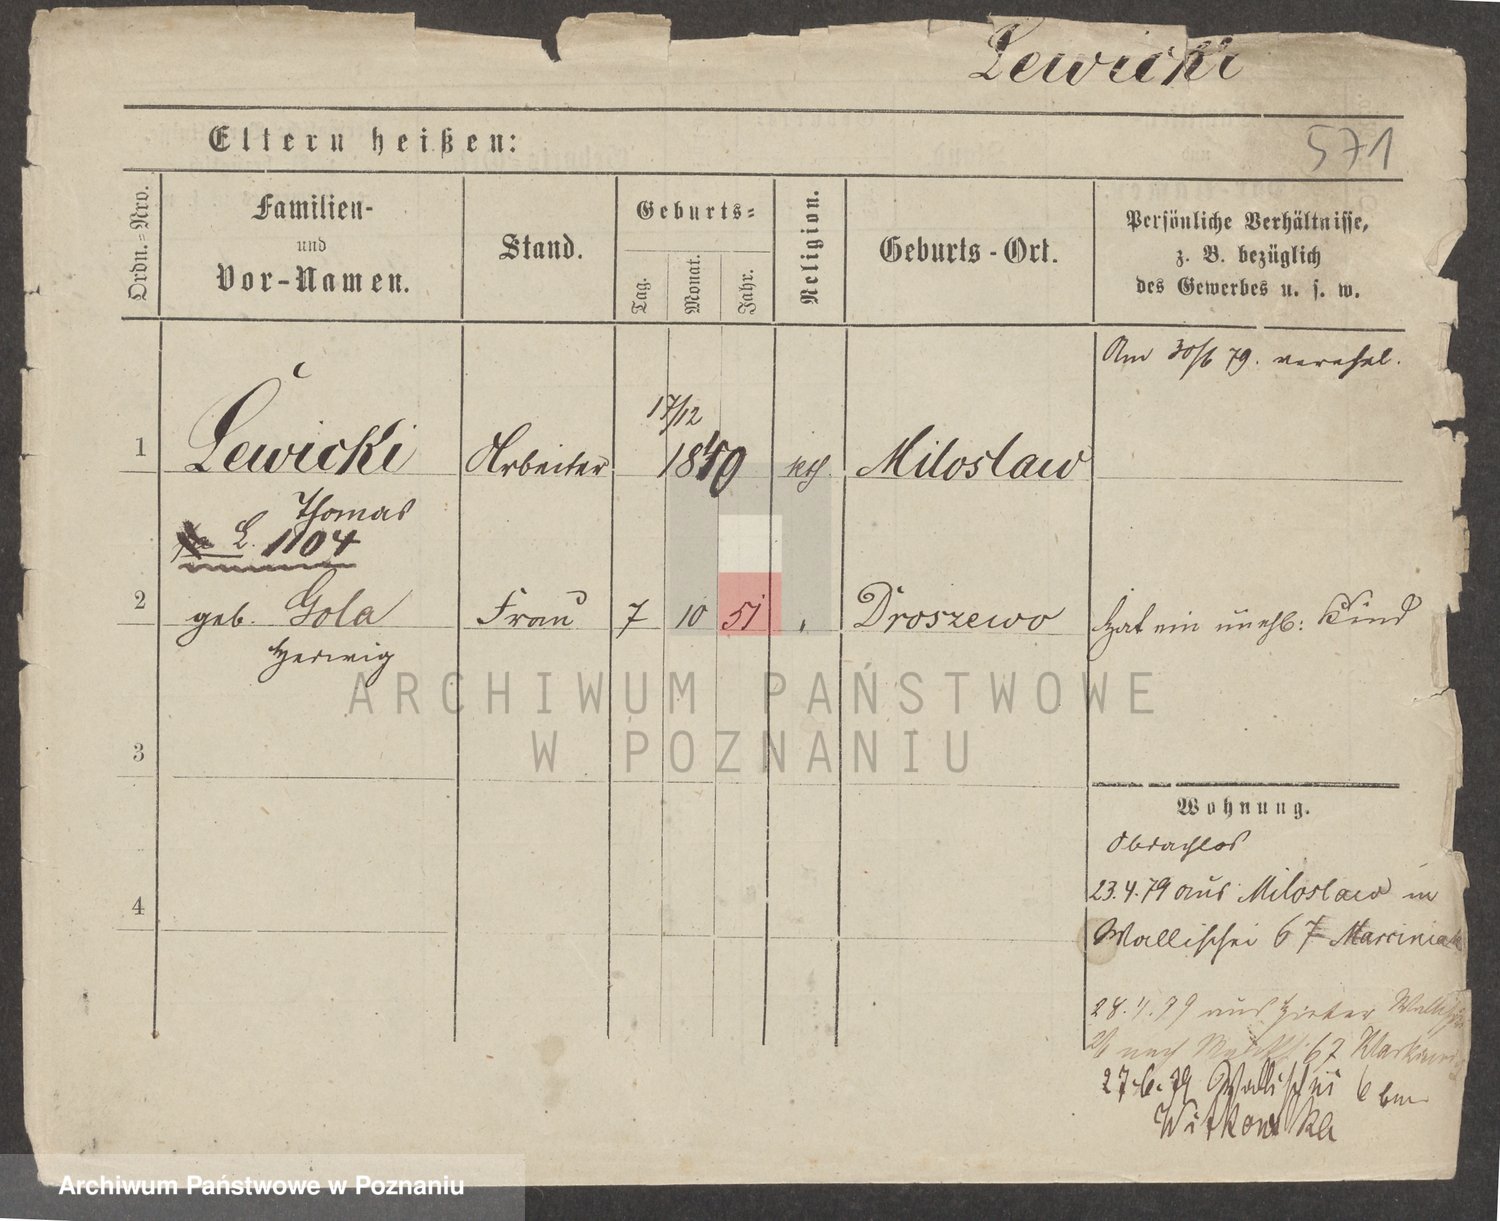 Lewicki
571
Eltern heißen:
Ordn.-Nro.
Familien-
und
Vor-Namen.
Stand.
Geburts-
Tag.
Monat.
Jahr.
Religion.
Geburts-Ort.
Persönliche Verhältnisse,
z. B. bezüglich
des Gewerbes u. s. w.
Am 30/6 79. verehel.
1
Lewicki
Thomas
Arbeiter
17/12
1850
kth.
Miloslaw
L. 1104
2
geb. Gola
Hedwig
Frau
7
10
51
Droszewo
Hat ein unehl: Kind
3
4
Wohnung.
Obdachlos
23.4.79 aus Miloslaw in
Wallischei 67 Marciniak
28.4.79 aus
nach 67
27.6.79 Wallischei 6 bei
Witkowska
ARCHIWUM PAŃSTWOWE
W POZNANIU
Archiwum Państwowe w Poznaniu